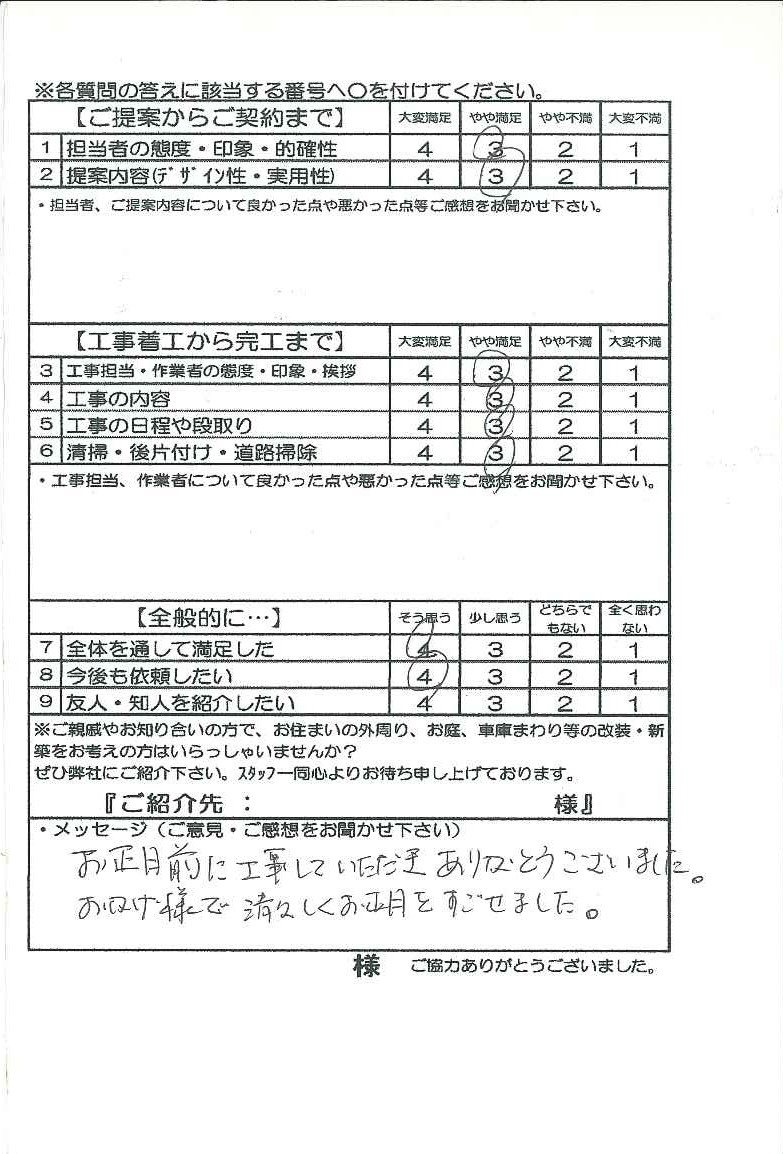 ※各質問の答えに該当する番号へ〇を付けてください。
【ご提案からご契約まで】 大変満足 やや満足 やや不満 大変不満
1 担当者の態度・印象・的確性 4 3 2 1
2 提案内容(ﾃﾞｻﾞｲﾝ性・実用性) 4 3 2 1
・担当者、ご提案内容について良かった点や悪かった点等ご感想をお聞かせ下さい。
【工事着工から完工まで】 大変満足 やや満足 やや不満 大変不満
3 工事担当・作業者の態度・印象・挨拶 4 3 2 1
4 工事の内容 4 3 2 1
5 工事の日程や段取り 4 3 2 1
6 清掃・後片付け・道路掃除 4 3 2 1
・工事担当、作業者について良かった点や悪かった点等ご感想をお聞かせ下さい。
【全般的に…】 そう思う 少し思う どちらでもない 全く思わない
7 全体を通して満足した 4 3 2 1
8 今後も依頼したい 4 3 2 1
9 友人・知人を紹介したい 4 3 2 1
※ご親戚やお知り合いの方で、お住まいの外周り、お庭、車庫まわり等の改装・新
築をお考えの方はいらっしゃいませんか？
ぜひ弊社にご紹介下さい。ｽﾀｯﾌ一同心よりお待ち申し上げております。
『ご紹介先： 様』
・メッセージ（ご意見・ご感想をお聞かせ下さい）
お正月前に工事していただき ありがとうございました。
おかげ様で 清々しくお正月をすごせました。
様 ご協力ありがとうございました。